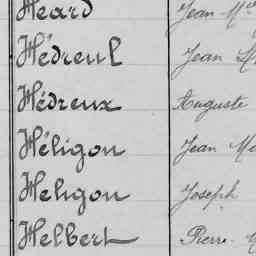 Heard Jean M
Hédreul Jean
Hédreux Auguste
Héligon Jean Ma
Heligon Joseph
Helbert Pierre